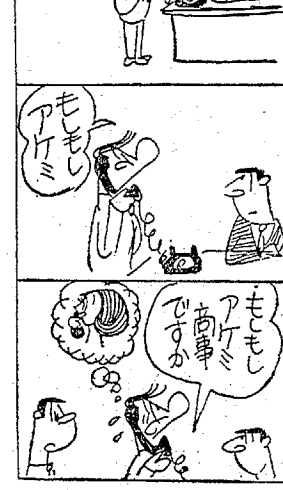 もしもし
アケミ
もしもし
アケミ
商事
ですか